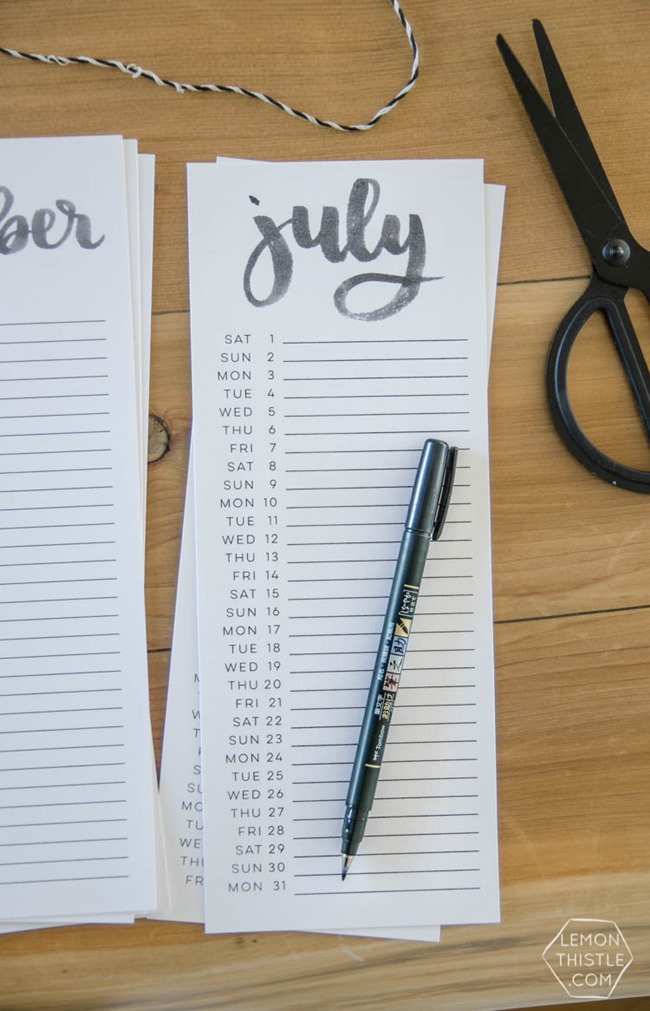 ber
july
SAT 1
SUN 2
MON 3
TUE 4
WED 5
THU 6
FRI 7
SAT 8
SUN 9
MON 10
TUE 11
WED 12
THU 13
FRI 14
SAT 15
SUN 16
MON 17
TUE 18
WED 19
THU 20
FRI 21
SAT 22
SUN 23
MON 24
TUE 25
WED 26
THU 27
FRI 28
SAT 29
SUN 30
MON 31
M
W
T
F
S
SU
MO
TU
WE
THU
FR
Tombow
LEMON
THISTLE
.COM